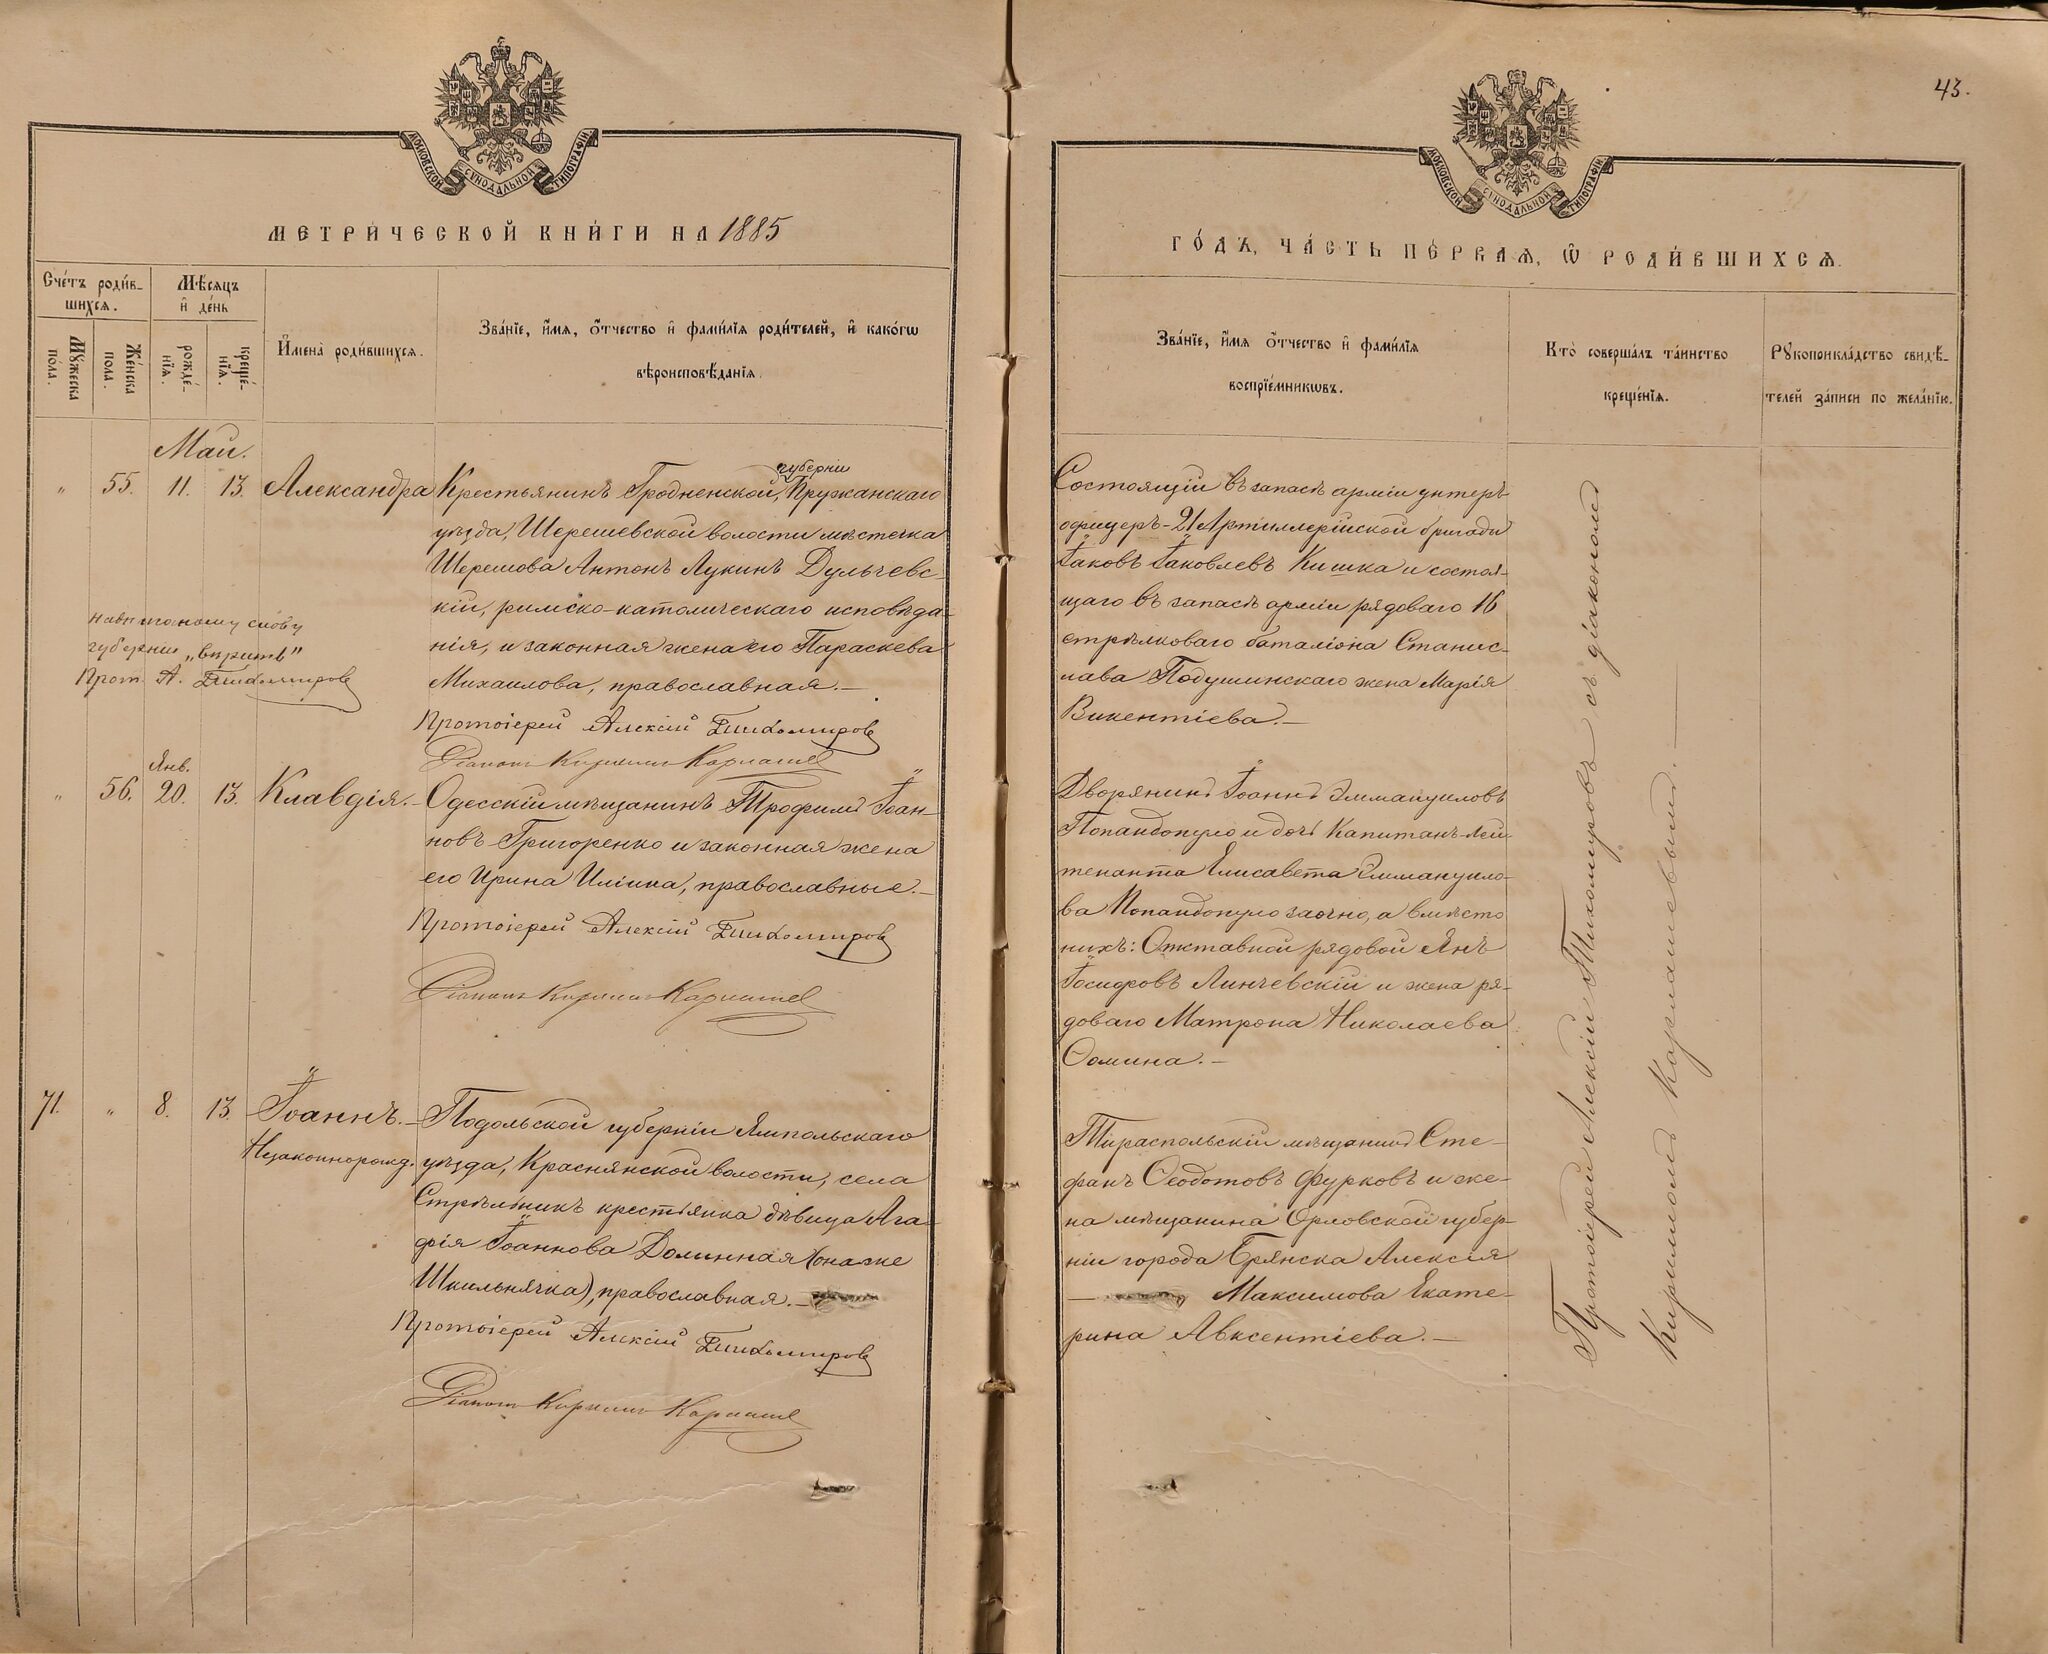 43.
МОСКОВСКОЙ СѴНОДАЛЬНОЙ ТИПОГРАФІИ
МОСКОВСКОЙ СѴНОДАЛЬНОЙ ТИПОГРАФІИ
МЕТРИ́ЧЕСКОЙ КНИ́ГИ НА 1885
ГО́ДЪ, ЧА́СТЬ ПЕ́РВАЯ, Ѿ РОДИ́ВШИХСЯ.
Сче́тъ роди́в-
шихся.
Мѣ́сяцъ
и҆ де́нь
Мꙋ́жеска
по́ла.
Же́нска
пола.
рожде́-
нїя.
креще́-
нїя.
И҆мена̀ роди́вшихся.
Зва́нїе, и҆́мя, ѻ҆́тчество и҆ фами́лїя роди́телей, и҆ како́гѡ
вѣроисповѣ́данїя.
Зва́нїе, и҆́мя ѻ҆́тчество и҆ фами́лїя
воспрїе́мникѡвъ.
Кто̀ соверша́лъ та́инство
креще́нїя.
Рꙋкоприкла́дство свидѣ́-
телей за́писи по жела́нїю.
Май.
" 55. 11. 13. Александра
губерніи
Крестьянинъ Гродненской, Пружанскаго
уѣзда, Шерешевской волости мѣстечка
Шерешова Антонъ Лукинъ Дульчевс-
кій, римско-католическаго исповѣда-
нія, и законная жена его Параскева
Михаилова, православная.—
Протоіерей Алексій Тихомировъ
Діаконъ Кириллъ Кармашев
надписанному слову
губерніи „вѣрить"
Прот. А. Тихомировъ
Состоящій въ запасѣ арміи унтеръ-
офицеръ-21 Артиллерійской бригады
Іаковъ Іаковлевъ Кишка и состоя-
щаго въ запасѣ арміи рядоваго 16
стрѣлковаго баталіона Станис-
лава Подушинскаго жена Марія
Викентіева.—
Янв.
" 56. 20. 13. Клавдія.—
Одесскій мѣщанинъ Трофимъ Іоан-
новъ Григоренко и законная жена
его Ирина Иліина, православные.—
Протоіерей Алексій Тихомировъ
Діаконъ Кириллъ Кармашев
Дворянинъ Іоаннъ Эммануиловъ
Попандопуло и дочь Капитанъ-лей-
тенанта Елисавета Эммануило-
ва Попандопуло заочно, а вмѣсто
нихъ: Отставной рядовой Янъ
Іосифовъ Линчевскій и жена ря-
доваго Матрона Николаева
Ѳомина.—
71. " 8. 13. Іоаннъ.—
Незаконнорожд.
Подольской губерніи Ямпольскаго
уѣзда, Краснянской волости, села
Стрѣльникъ крестьянка дѣвица Ага-
фія Іоаннова Долинная (она же
Шкильнячка), православная.—
Протоіерей Алексій Тихомировъ
Діаконъ Кириллъ Кармашев
Тираспольскій мѣщанинъ Сте-
фанъ Ѳеодотовъ Фурковъ и же-
на мѣщанина Орловской губер-
ніи города Брянска Алексія
Максимова Екате-
рина Авксентіева.—
Протоіерей Алексій Тихомировъ съ діакономъ
Кирилломъ Кармашевымъ.—